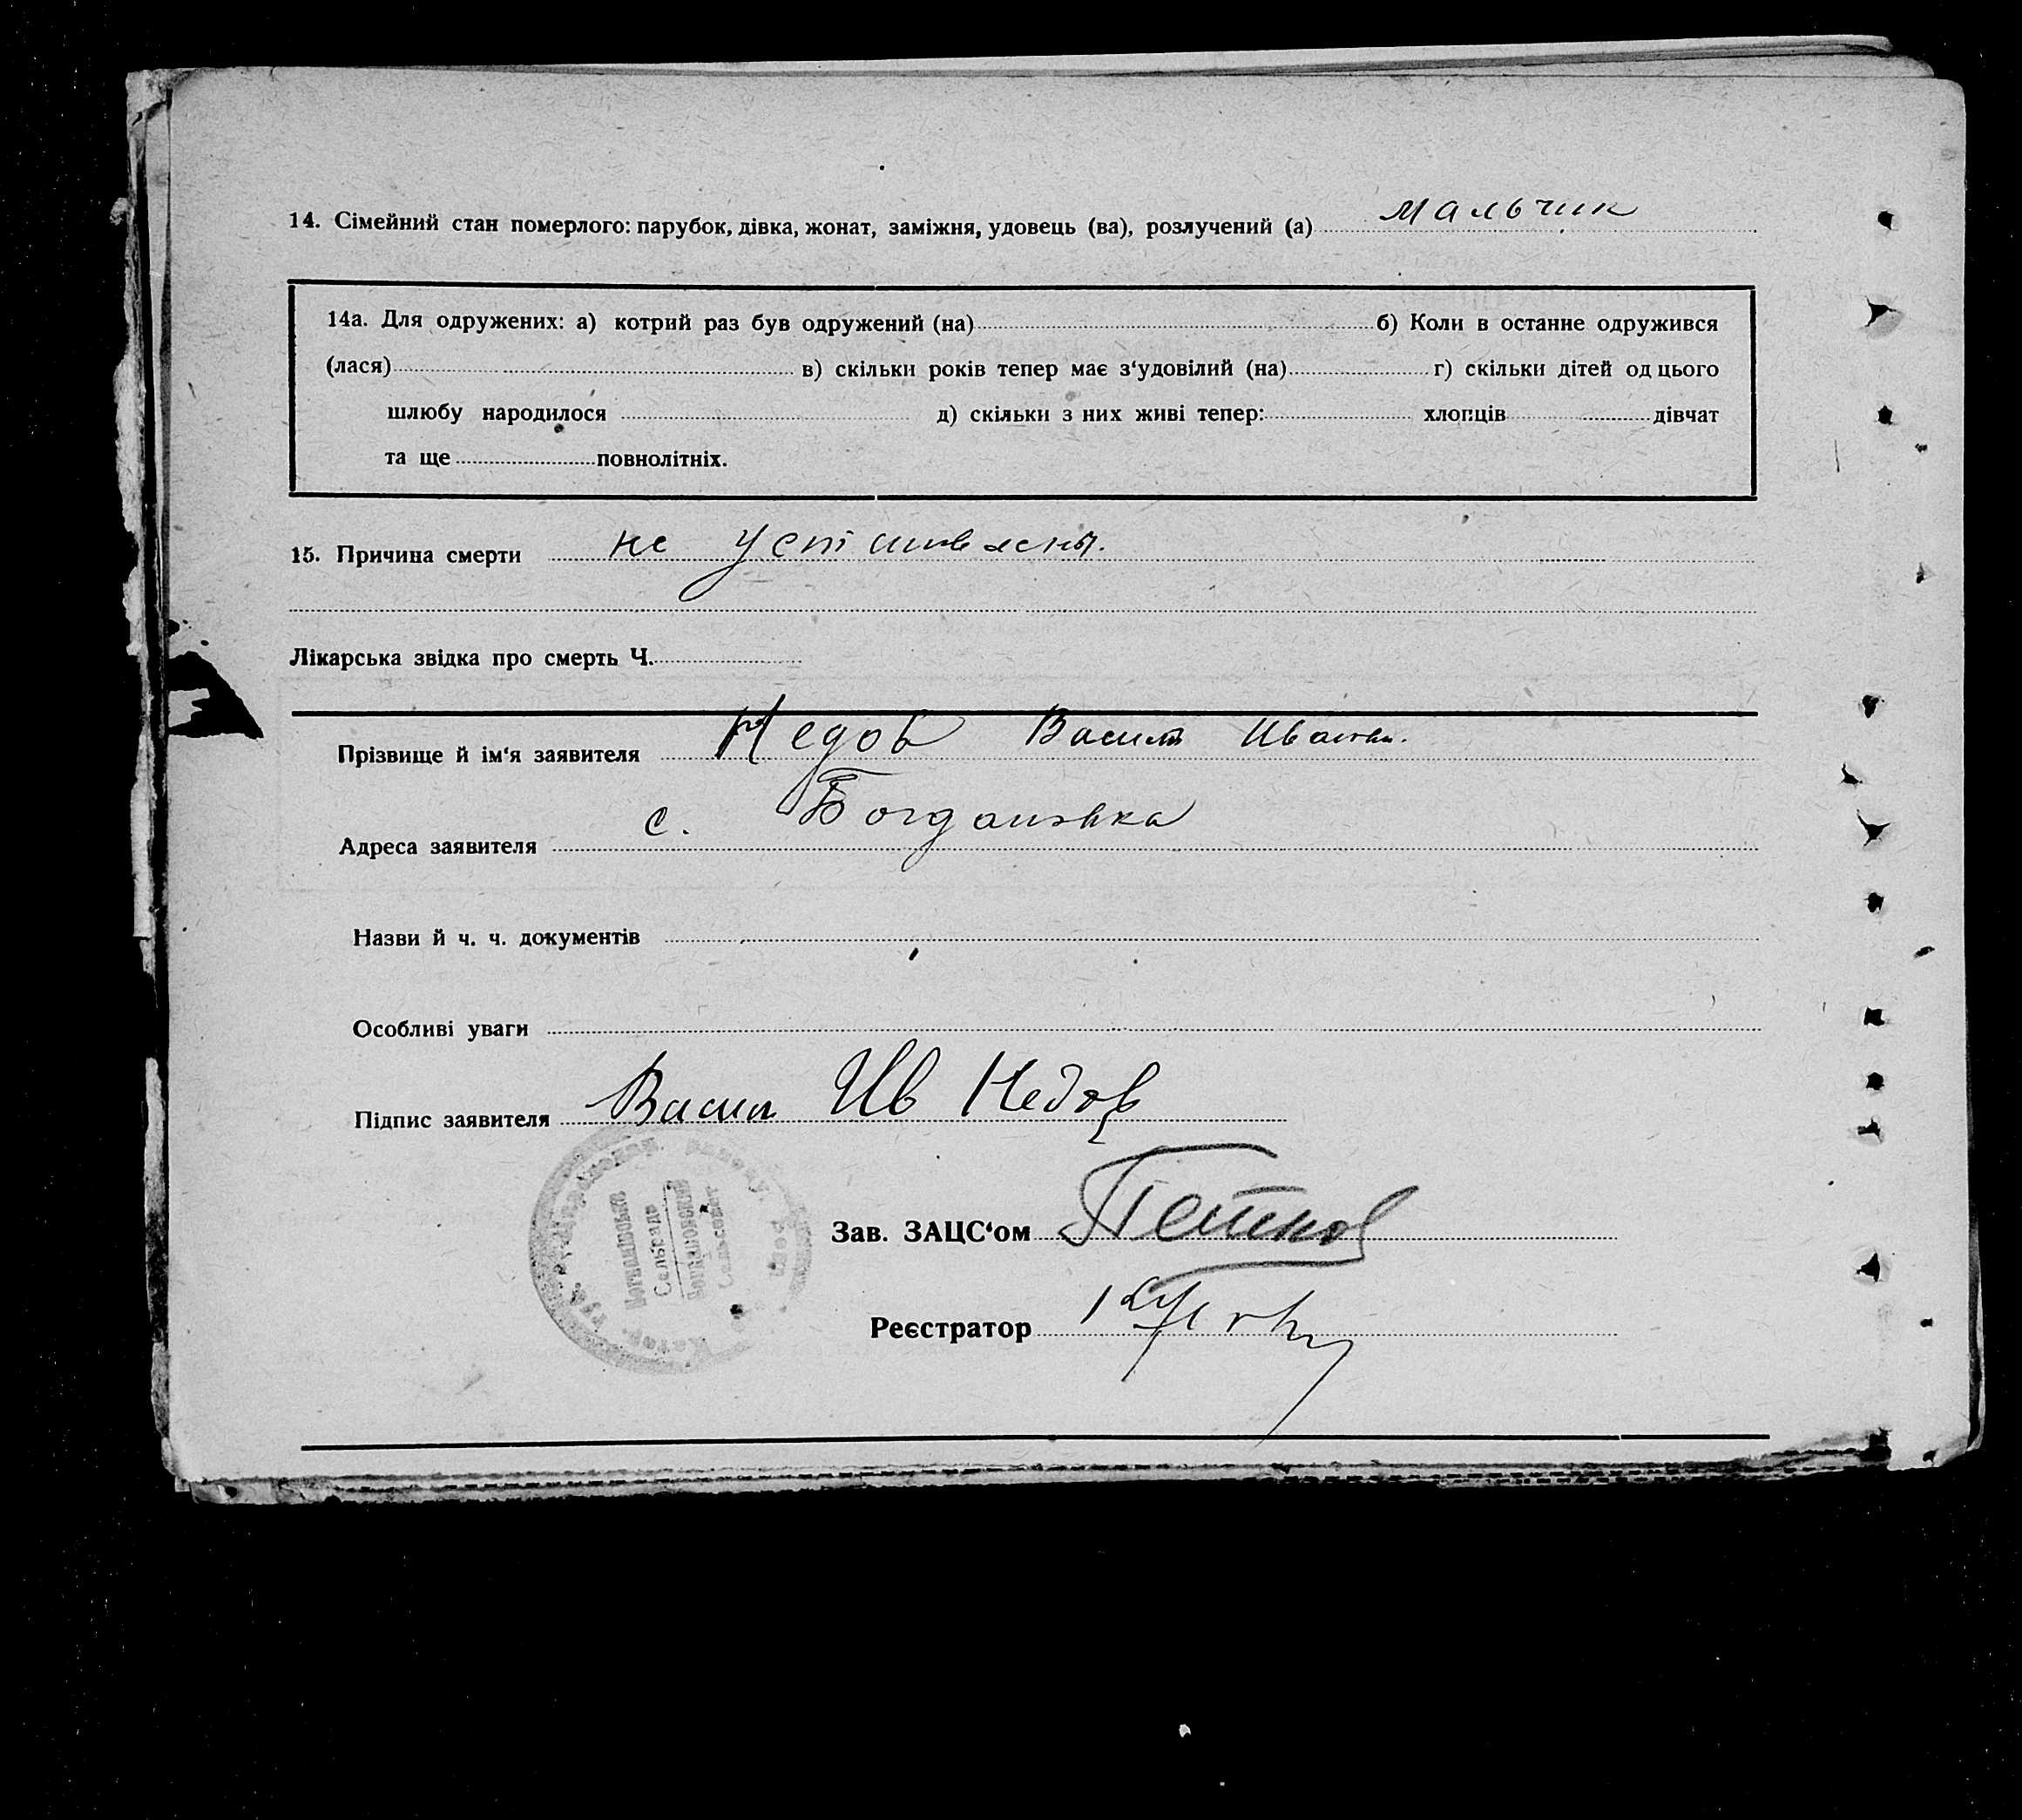 14. Сімейний стан померлого: парубок, дівка, жонат, заміжня, удовець (ва), розлучений (а) мальчик
14а. Для одружених: а) котрий раз був одружений (на) б) Коли в останне одружився
(лася) в) скільки років тепер має з‘удовілий (на) г) скільки дітей од цього
шлюбу народилося д) скільки з них живі тепер: хлопців дівчат
та ще повнолітніх.
15. Причина смерти не установлены.
Лікарська звідка про смерть Ч.
Прізвище й ім‘я заявителя Недов Васил Иванов.
Адреса заявителя с. Богдановка
Назви й ч. ч. документів
Особливі уваги
Підпис заявителя Васил Ив Недов
Сельрада
Сельсовет
Зав. ЗАЦС‘ом Петков
Реєстратор